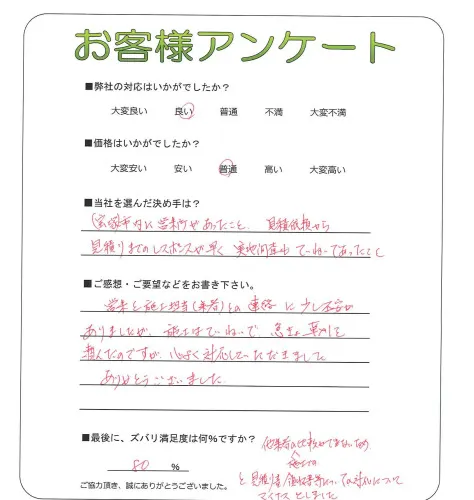 お客様アンケート
■弊社の対応はいかがでしたか?
大変良い 良い 普通 不満 大変不満
■価格はいかがでしたか?
大変安い 安い 普通 高い 大変高い
■当社を選んだ決め手は?
市内に営業所があったこと、見積依頼から
見積りまでのレスポンスが早く 実地調査も ていねいであったこと
■ご感想・ご要望などをお書き下さい。
営業と施工担当(業者)との連絡に少し不安が
ありましたが、施工はていねいで、急きょ
頼んだのですが、心よく対応していただきました
ありがとうございました。
■最後に、ズバリ満足度は何%ですか?
80 %
他業者の比較ができないため
と 見積り書 についての対応について
マイナスとしました
ご協力頂き、誠にありがとうございました。